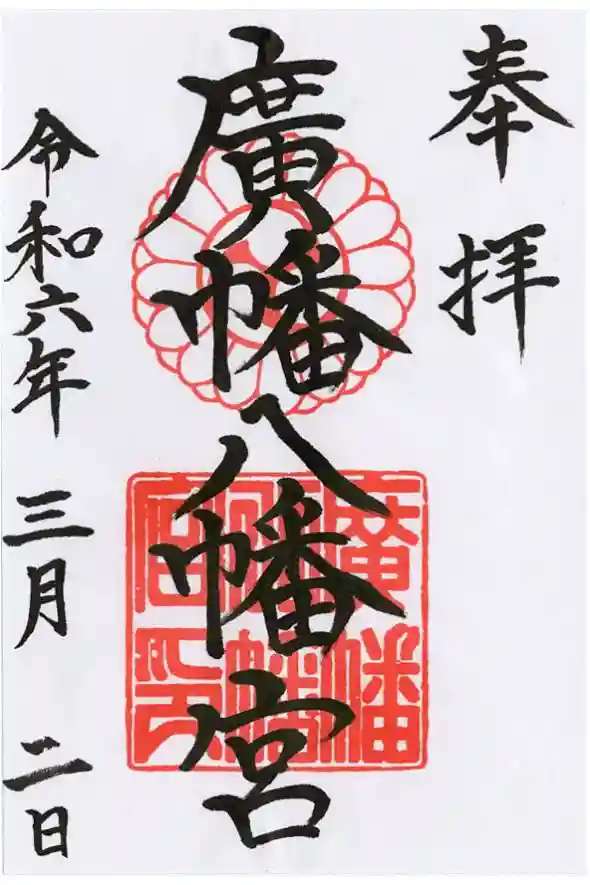 奉拝
廣幡八幡宮
廣幡
八幡
宮印
令和六年 三月 二日